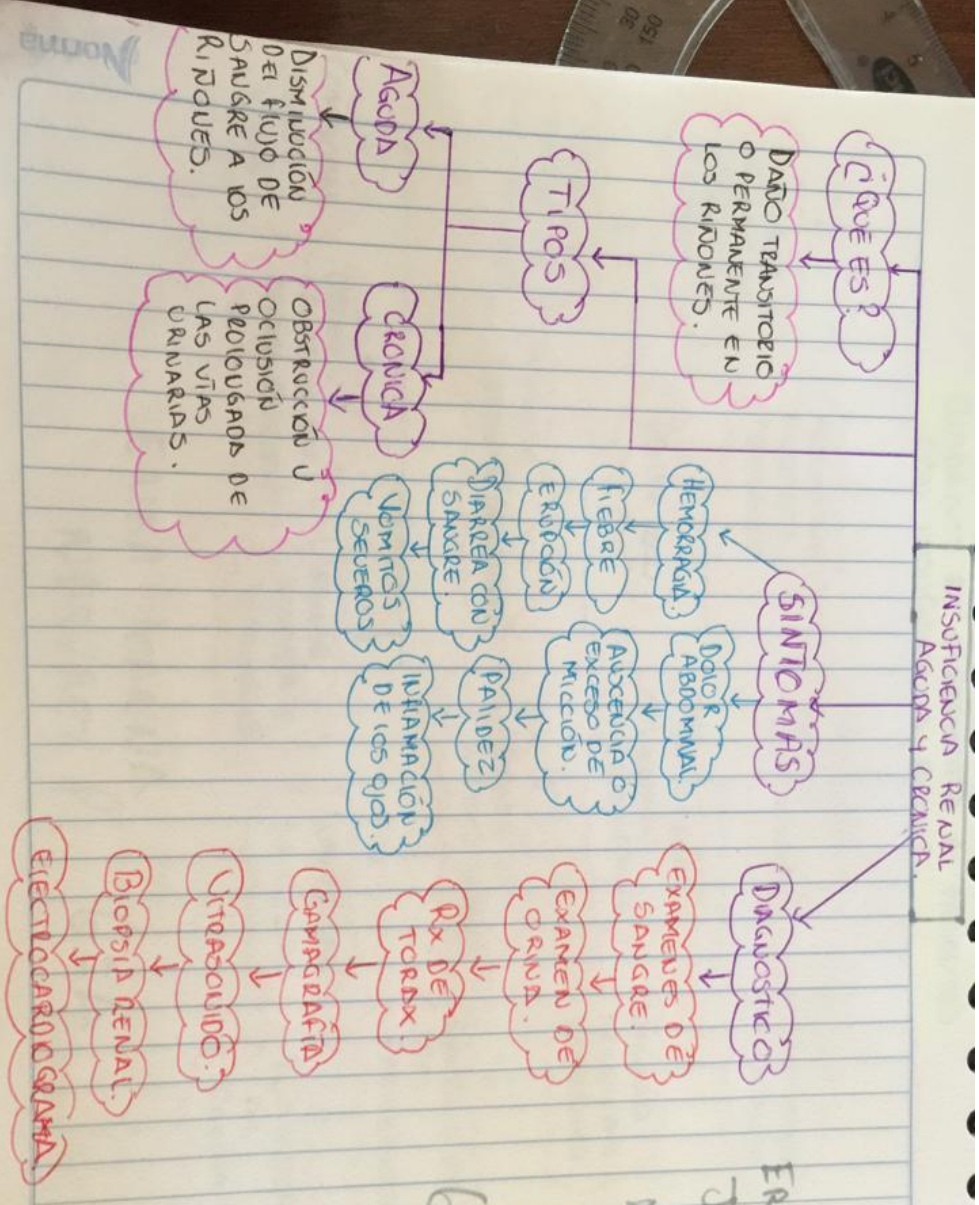 INSUFICIENCIA RENAL
AGUDA Y CRONICA.
¿QUE ES?
DAÑO TRANSITORIO
O PERMANENTE EN
LOS RIÑONES.
TIPOS
AGUDA
DISMINUCIÓN
DEL FLUJO DE
SANGRE A LOS
RIÑONES.
CRONICA
OBSTRUCCIÓN U
OCLUSIÓN
PROLONGADA DE
LAS VÍAS
URINARIAS.
SINTOMAS
HEMORRAGIA.
FIEBRE
ERUPCIÓN
DIARREA CON
SANGRE.
VOMITOS
SEVEROS
DOLOR
ABDOMINAL.
AUSCENCIA O
EXCESO DE
MICCIÓN.
PALIDEZ
INFLAMACIÓN
DE LOS OJOS.
DIAGNOSTICO
EXAMENES DE
SANGRE.
EXAMEN DE
ORINA.
RX DE
TORAX.
GAMAGRAFÍA
ULTRASONIDO.
BIOPSIA RENAL.
ELECTROCARDIOGRAMA.
Norma
30
150
ER